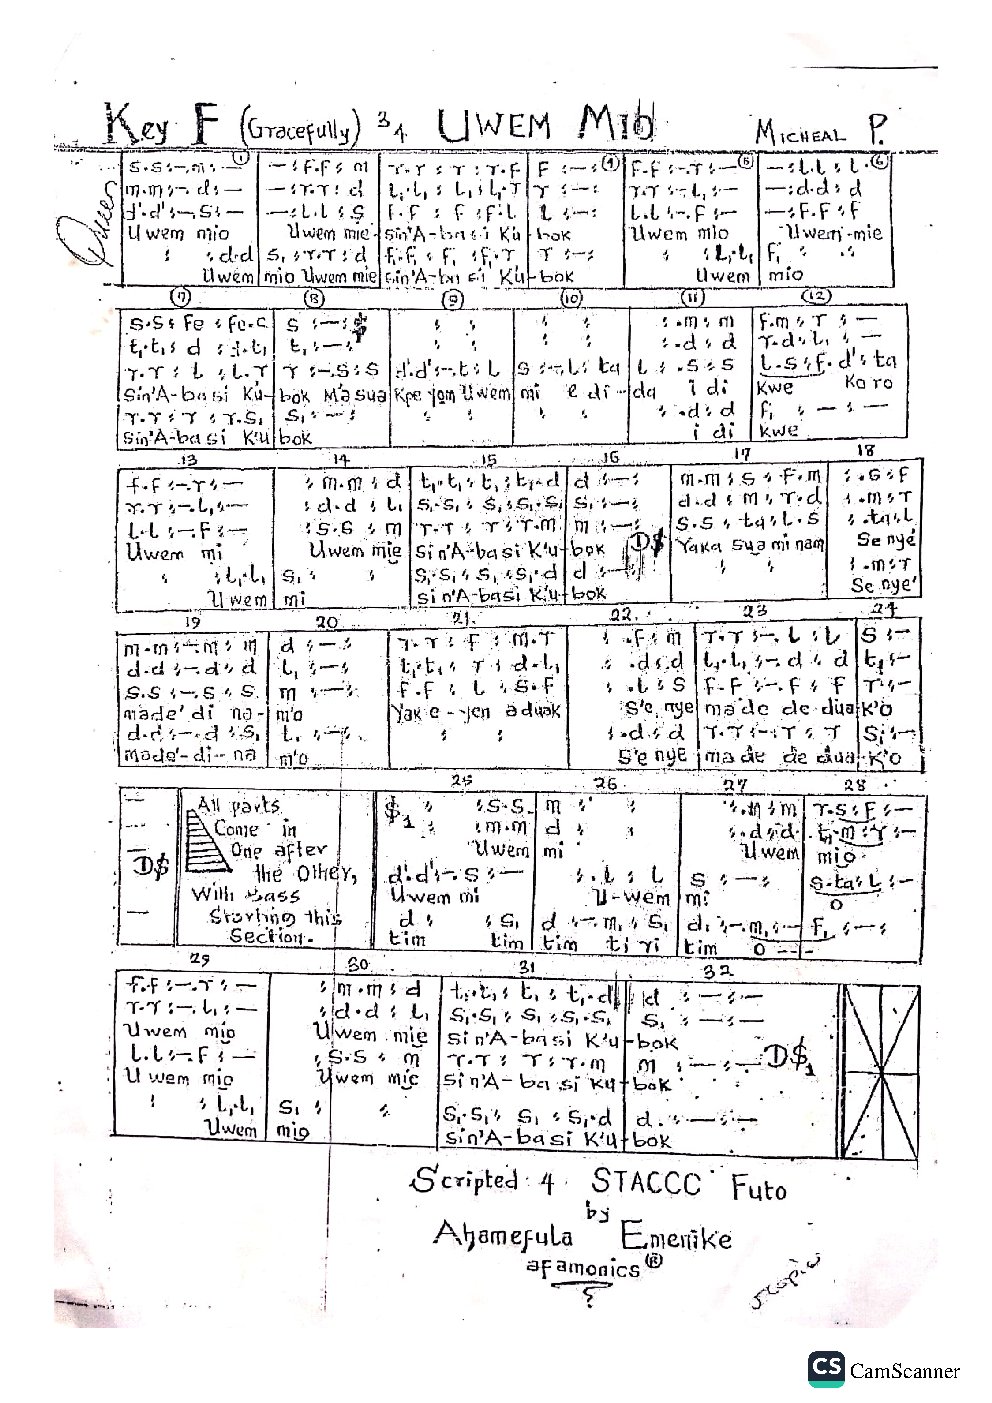 Key F (Gracefully) 3/4 UWEM MIO MICHEAL P.
s.s :-.m :- | - : f.f : m | r.r : r : r.f | f :- :- | f.f :-.r :- | - : l.l : l
m.m :-. d :- | - : r.r : d | l₁.l₁ : l₁ : l₁.r | r :- :- | r.r :-.l₁ :- | - : d.d : d
d'.d' :-.s :- | - : l.l : s | f.f : f : f.l | l :- :- | l.l :-.f :- | - : f.f : f
Uwem mio | Uwem mie- | sin'A-basi Ku- | bok | Uwem mio | Uwem-mie
: : d.d | s₁ : r.r : d | f₁.f₁ : f₁ : f₁.r | r :- :- | : : l₁.l₁ | f₁ : :
Uwem | mio Uwem mie | sin'A-basi Ku- | bok | Uwem | mio
7 8 9 10 11 12
s.s : fe : fe.s | s :- :- | : : | : : | : .m : m | f.m : r :-
t₁.t₁ : d : d.t₁ | t₁ :- :- | : : | : : | : .d : d | r.d : l₁ :-
r.r : l : l.r | r :-.s : s | d'.d' :-.t : l | s :-.l : ta | l : .s : s | l.s : f.d' : ta
Sin'A-basi Ku- | bok Ma sua | Kpe yom Uwem | mi e di- | da i di | Kwe Ko ro
r.r : r : r.s₁ | s₁ :- :- | : : | : : | : .d : d | f₁ :- :-
Sin'A-basi K'u | bok | i di | kwe
13 14 15 16 17 18
f.f :-.r :- | : m.m : d | t₁.t₁ : t₁ : t₁.d | d :- :- | m.m : s : f.m | : .s : f
r.r :-.l₁ :- | : d.d : l₁ | s₁.s₁ : s₁ : s₁.s₁ | s₁ :- :- | d.d : m : r.d | : .m : r
l.l :-.f :- | : s.s : m | r.r : r : r.m | m :- :- D$ | s.s : ta : l.s | : .ta : l
Uwem mi | Uwem mie | sin'A-basi K'u- | bok | Yaka sua mi nam | Se nye
: : l₁.l₁ | s₁ : : | s₁.s₁ : s₁ : s₁.d | d :- :- | : : | : .m : r
Uwem | mi | sin'A-basi K'u- | bok | Se nye'
19 20 21. 22. 23 24
m.m :-.m : m | d :- :- | r.r : f : m.r | : .f : m | r.r :-.l : l | s :-
d.d :-.d : d | l₁ :- :- | t₁.t₁ : r : d.l₁ | : .d : d | l₁.l₁ :-.d : d | t₁ :-
s.s :-.s : s. | m :- :- | f.f : l : s.f | : .l : s | f.f :-.f : f | r :-
made' di na- | m'o | Yak e-yen aduak | S'e nye | ma de de dua | K'o
d.d :-.d : s₁ | l₁ :- :- | : : | : .d : d | r.r :-.r : r | s₁ :-
made'-di-na | m'o | S'e nye | ma de de dua- | K'o
25 26 27 28
D$ | All parts | $₁ : : s.s. | m : : | : .m : m | r.s : f :-
Come in | : : m.m | d : : | : .d : d | t₁.m : r :-
One after | Uwem | mi | Uwem | mio
the Other, | d'.d' :-.s :- | : .l : l | s :- :- | s.ta : l :-
With Bass | Uwem mi | U-wem | mi | o
Starting this | d : : s₁ | d :-.m₁ : s₁ | d :-.m₁ :- | f₁ :- :-
Section. | tim tim | tim ti ri | tim o ---
29 30 31 32
f.f :-.r :- | : m.m : d | t₁.t₁ : t₁ : t₁.d | d :- :-
r.r :-.l₁ :- | : d.d : l₁ | s₁.s₁ : s₁ : s₁.s₁ | s₁ :- :-
Uwem mio | Uwem mie | sin'A-basi K'u- | bok
l.l :-.f :- | : s.s : m | r.r : r : r.m | m :- :- D$₁
Uwem mio | Uwem mie | sin'A-ba si ku- | bok
: : l₁.l₁ | s₁ : : | s₁.s₁ : s₁ : s₁.d | d. :- :-
Uwem | mio | sin'A-basi K'u- | bok
Scripted 4 STACCC Futo
by
Ahamefula Emenike
afamonics®
CS CamScanner